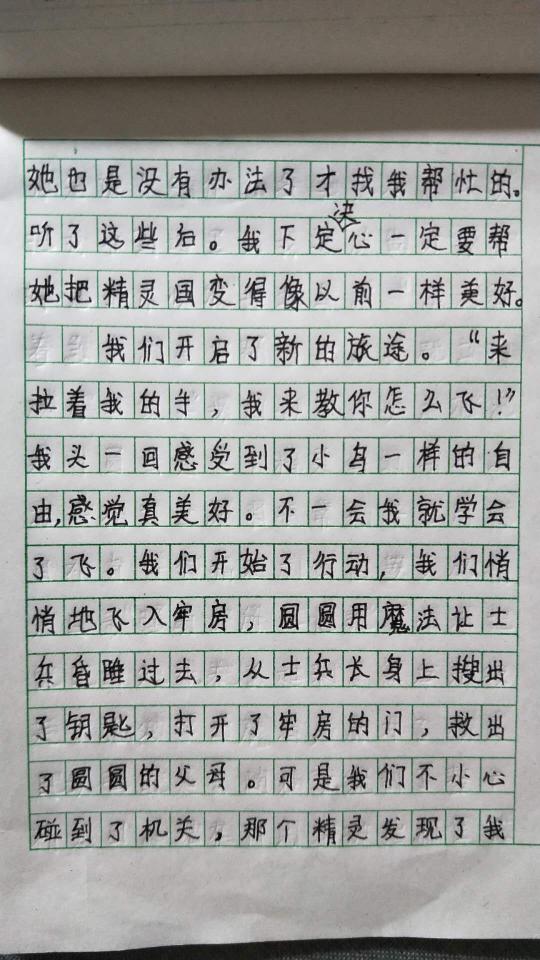 她也是没有办法了才找我帮忙的。
听了这些后。我下定决心一定要帮
她把精灵国变得像以前一样美好。
我们开启了新的旅途。“来
拉着我的手，我来教你怎么飞！”
我头一回感受到了小鸟一样的自
由，感觉真美好。不一会我就学会
了飞。我们开始了行动，我们悄
悄地飞入牢房，圆圆用魔法让士
兵昏睡过去，从士兵长身上搜出
了钥匙，打开了牢房的门，救出
了圆圆的父母。可是我们不小心
碰到了机关，那个精灵发现了我